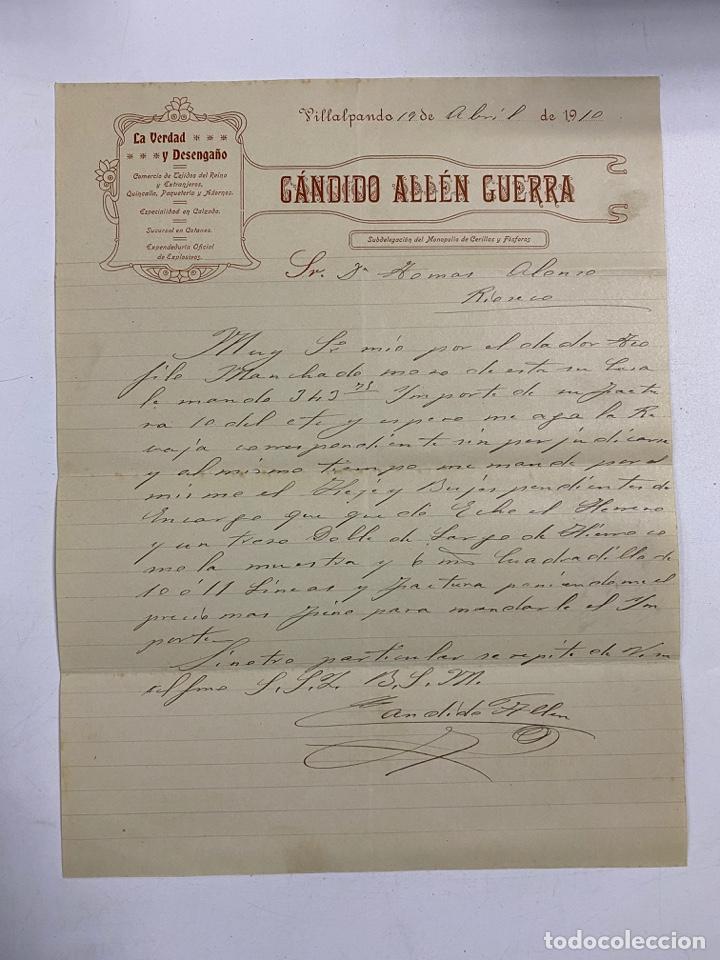 La Verdad
y Desengaño
Comercio de Tejidos del Reino
y Extranjeros,
Quincalla, Paquetería y Adornos.
Especialidad en Calzado.
Sucursal en Cotanes.
Expendeduría Oficial
de Explosivos.
Villalpando 19 de Abril de 1910
CÁNDIDO ALLÉN GUERRA
Subdelegación del Monopolio de Cerillas y Fósforos
Sr. Dn Tomas Alonso
Rioseco
Muy Sr mio por el dador Teo
filo Manchado mozo de esta su Casa
le mando 343 Importe de su factu
ra 10 del cte y espero me aga la Re
vaja correspondiente sin perjudicarse
y al mismo tiempo me mande por el
mismo el Flege y Bujes pendientes de
Encargo que quedó Echo el
y un trozo Doble de Largo de Hierro co
mo la muestra y 6 ms Cuadradillo de
10 ó 11 Lineas y factura poniendome el
precio mas fino para mandarle el Im
porte
Sin otro particular se repite de V.
afmo S. S. Q. B. S. M.
Candido Allen
todocoleccion.net